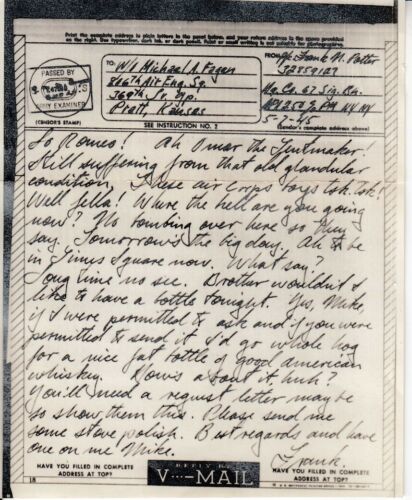 Print the complete address in plain letters in the panel below, and your return address in the space provided
on the right. Use typewriter, dark ink, or dark pencil. Faint or small writing is not suitable for photographing.
PASSED BY
U.S
ARMY EXAMINER
(CENSOR'S STAMP)
TO
Michael A. Fagan
Air Eng. Sq.
Pratt, Kansas
SEE INSTRUCTION NO. 2
FROM
Frank N. Potter
32859129
Hq. Co. 67 Sig. Bn.
APO 250 % PM NY NY
5-7-45
(Sender's complete address above)
So Romeo! Ah Omar the Tentmaker!
Still suffering from that old glandular
condition, These air corps boys tsk tsk!
Well fella! Where the hell are you going
now? No bombing over here so they
say. Tomorrow's the big day. Ah to be
in Times Square now. What say?
Long time no see. Brother wouldn't I
like to have a bottle tonight. Yes, Mike,
if I were permitted to ask and if you were
permitted to send it I'd go whole hog
for a nice fat bottle of good american
whiskey. How's about it, huh?
You'll need a request letter maybe
so show them this. Please send me
some stove polish. Best regards and have
one on me Mike.
Frank.
HAVE YOU FILLED IN COMPLETE
ADDRESS AT TOP?
REPLY BY
V···–MAIL
HAVE YOU FILLED IN COMPLETE
ADDRESS AT TOP?
18